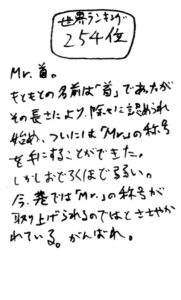 世界ランキング
254位
Mr.首。
もともとの名前は「首」であったが
その長さにより、除々に認められ
始め、ついには「Mr.」の称号
を手にすることができた。
しかしおどろくほど弱い。
今、巷では「Mr.」の称号が
取り上げられるのではとささやか
れている。がんばれ。